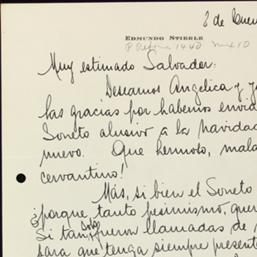 2 de
EDMUNDO STIERLE
P. Reforma 1440
Muy estimado Salvador:
Deseamos Angelica y y
las gracias por habernos envia
Soneto alusivo a la Navidad
nuevo. Que hermoso,
cervantino!
Mas, si bien el Soneto
¿porque tanto pesimismo, quer
Si tan solo fueron llamadas de
para que tenga siempre present